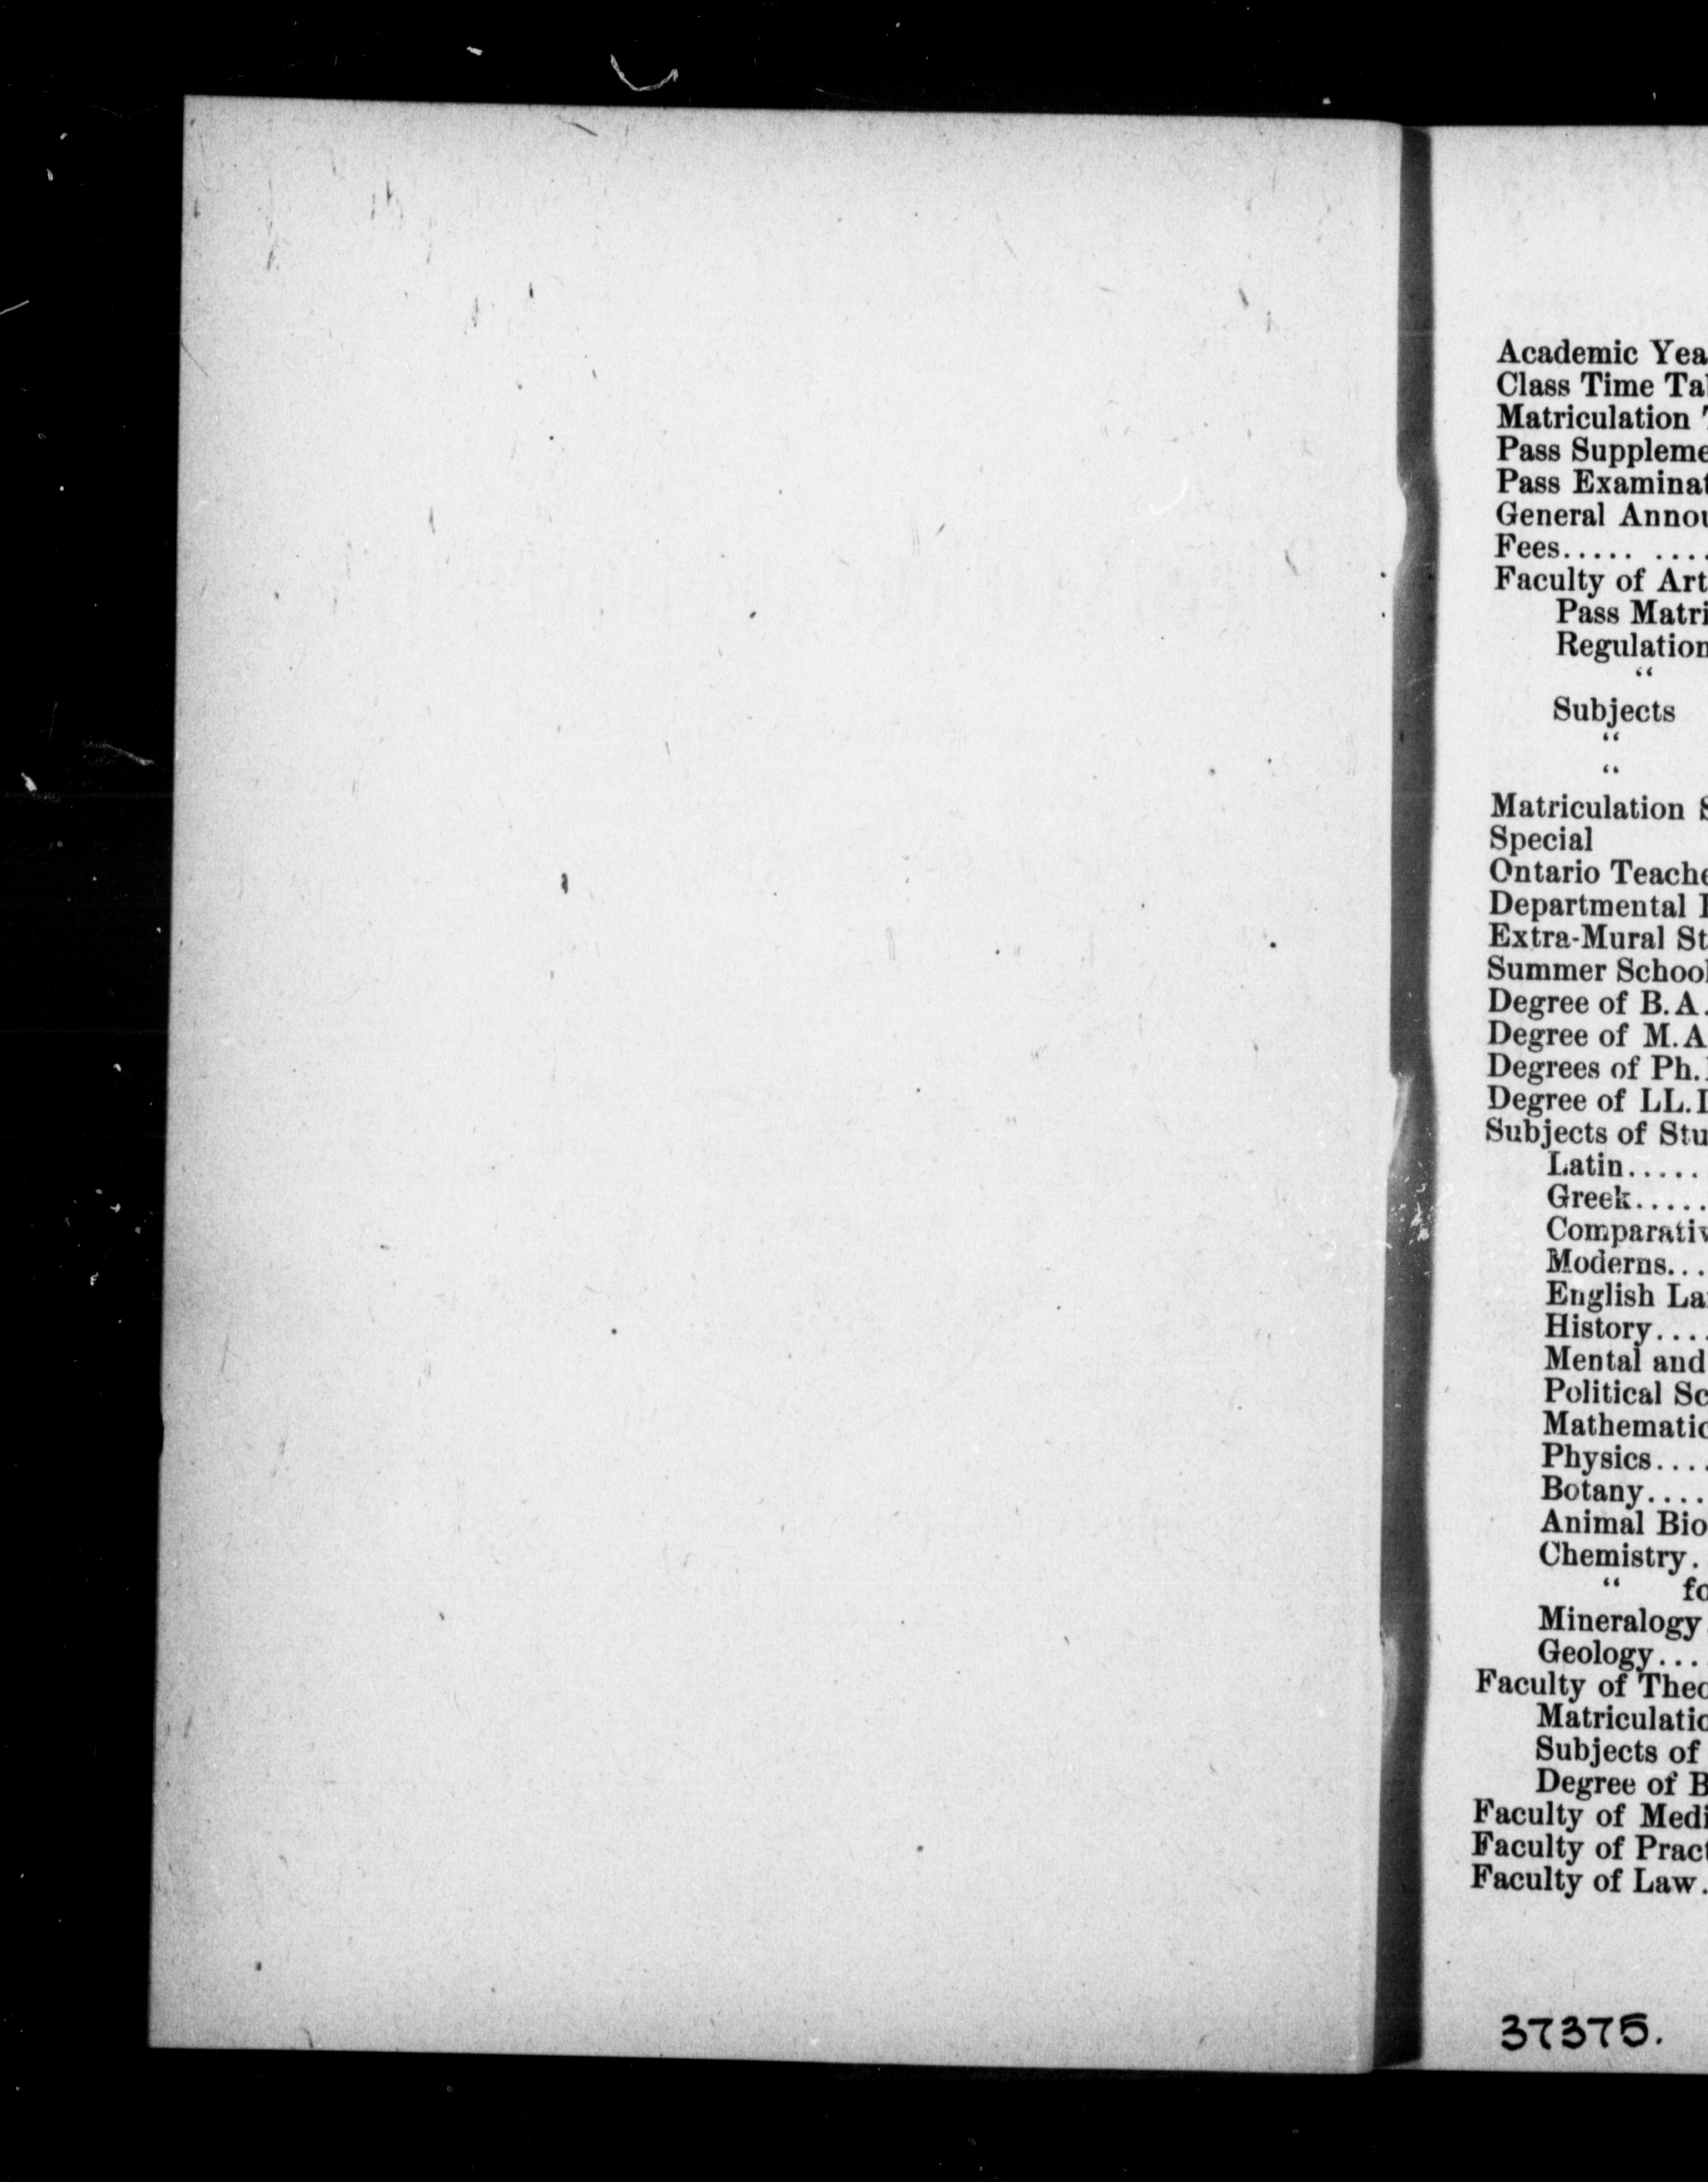 Academic Yea
Class Time Ta
Matriculation
Pass Suppleme
Pass Examinat
General Annou
Fees..... ....
Faculty of Art
Pass Matri
Regulation
“
Subjects
“
“
Matriculation S
Special
Ontario Teache
Departmental
Extra-Mural St
Summer School
Degree of B.A.
Degree of M.A
Degrees of Ph.
Degree of LL.
Subjects of Stu
Latin.....
Greek.....
Comparativ
Moderns...
English La
History....
Mental and
Political Sc
Mathematic
Physics....
Botany....
Animal Bio
Chemistry.
“ fo
Mineralogy
Geology...
Faculty of Theo
Matriculatio
Subjects of
Degree of B
Faculty of Medi
Faculty of Pract
Faculty of Law.
37375.